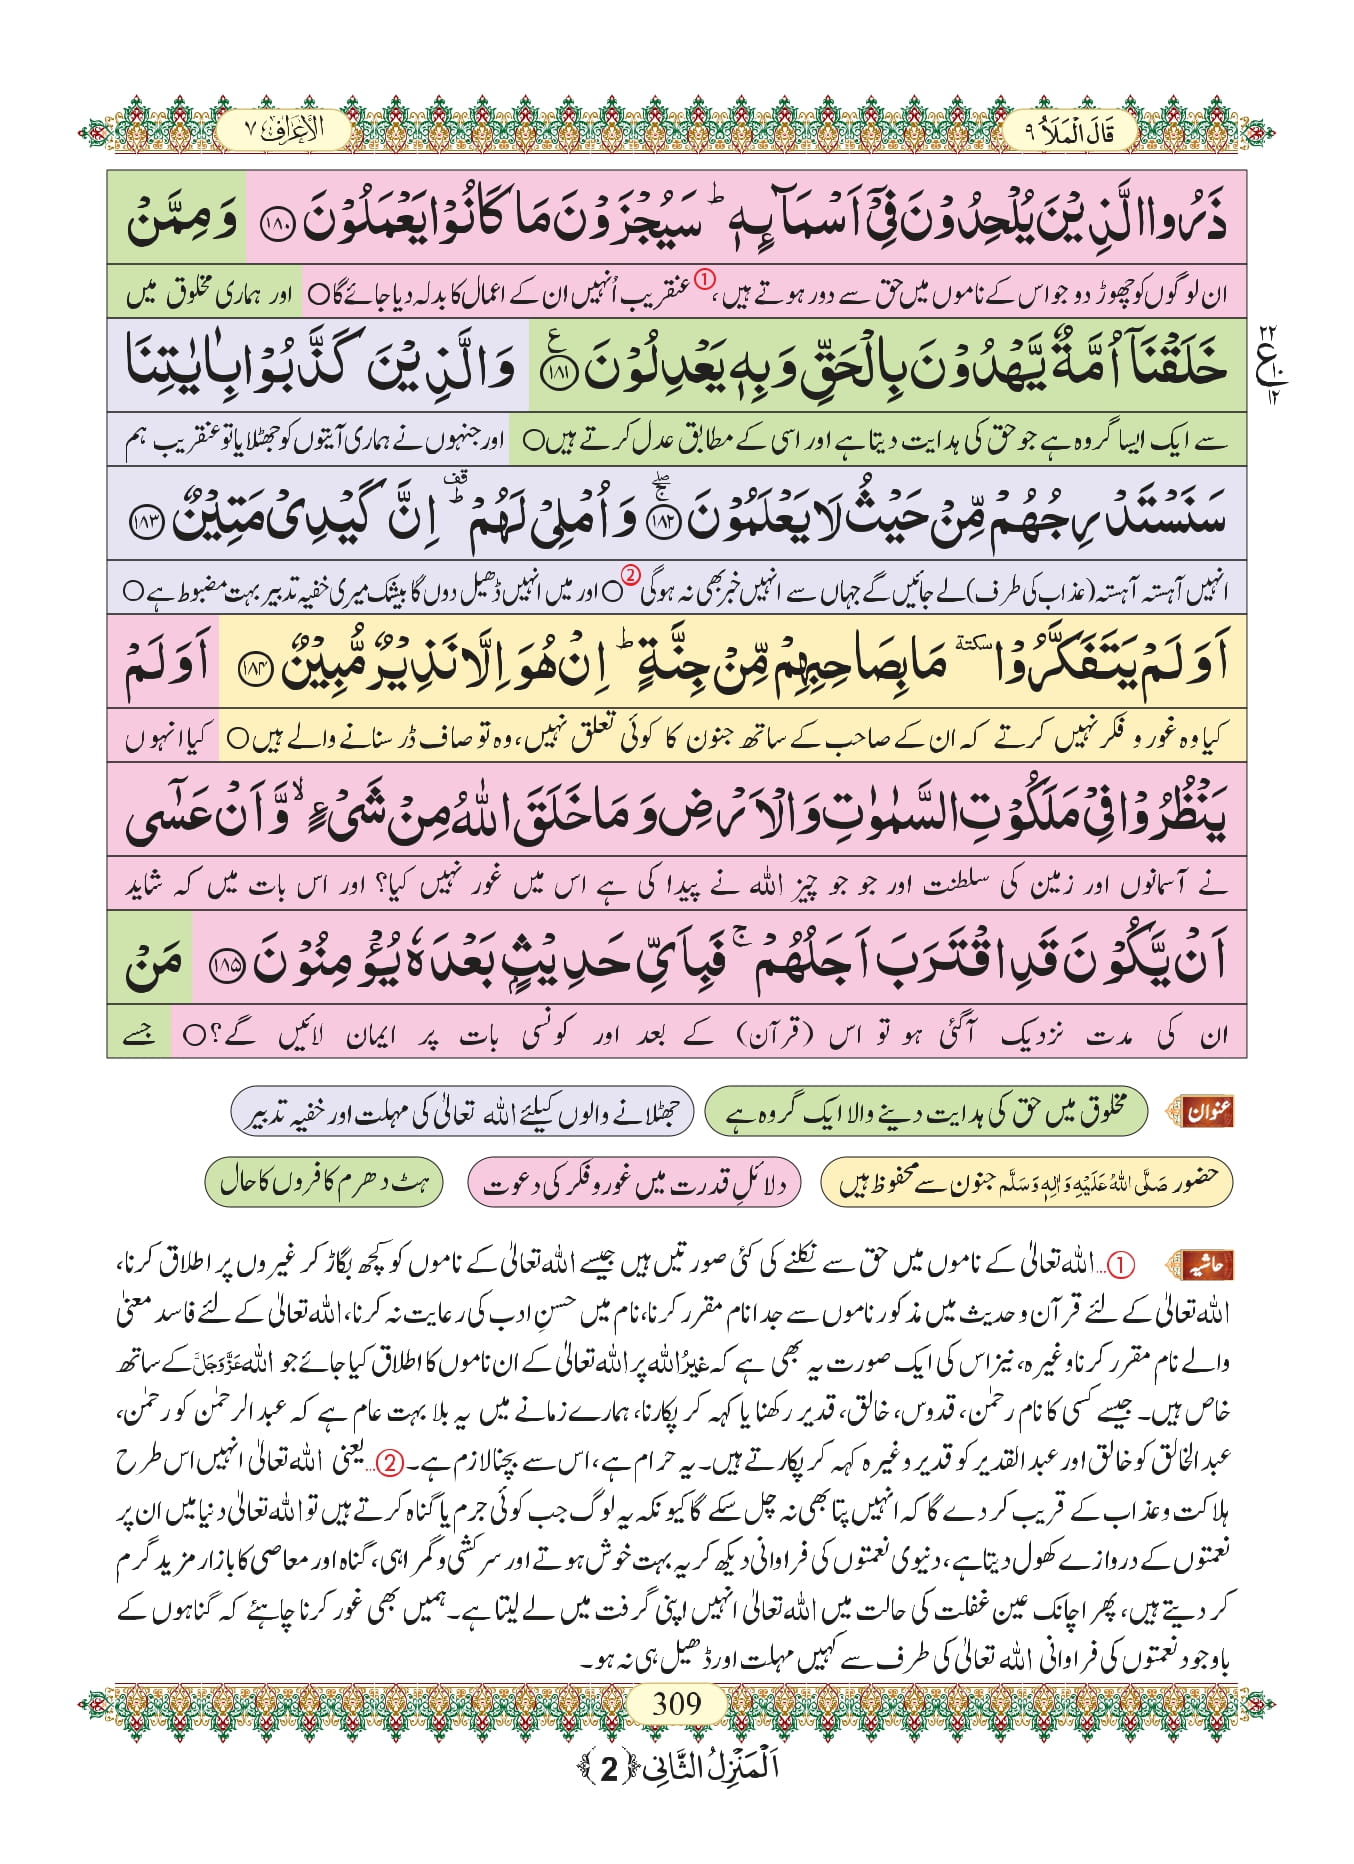 قَالَ الْمَلَاُ ٩
الْاَعْرَاف ٧
ذَرُوا الَّذِيْنَ يُلْحِدُوْنَ فِيْۤ اَسْمَآىِٕهٖ ؕ سَيُجْزَوْنَ مَا كَانُوْا يَعْمَلُوْنَ ﴿١٨٠﴾ وَ مِمَّنْ
ان لوگوں کو چھوڑ دو جو اس کے ناموں میں حق سے دور ہوتے ہیں،① عنقریب اُنہیں ان کے اعمال کا بدلہ دیا جائے گا○ اور ہماری مخلوق میں
خَلَقْنَاۤ اُمَّةٌ يَّهْدُوْنَ بِالْحَقِّ وَ بِهٖ يَعْدِلُوْنَ ﴿١٨١﴾ ع وَ الَّذِيْنَ كَذَّبُوْا بِاٰيٰتِنَا
٢٢ ع ١٠ ١٢
سے ایک ایسا گروہ ہے جو حق کی ہدایت دیتا ہے اور اسی کے مطابق عدل کرتے ہیں○ اور جنہوں نے ہماری آیتوں کو جھٹلایا تو عنقریب ہم
سَنَسْتَدْرِجُهُمْ مِّنْ حَيْثُ لَا يَعْلَمُوْنَ ﴿١٨٢﴾ وَ اُمْلِيْ لَهُمْ ؕ قف اِنَّ كَيْدِيْ مَتِيْنٌ ﴿١٨٣﴾
انہیں آہستہ آہستہ (عذاب کی طرف) لے جائیں گے جہاں سے انہیں خبر بھی نہ ہوگی②○ اور میں انہیں ڈھیل دوں گا بیشک میری خفیہ تدبیر بہت مضبوط ہے○
اَوَ لَمْ يَتَفَكَّرُوْا سكتة مَا بِصَاحِبِهِمْ مِّنْ جِنَّةٍ ؕ اِنْ هُوَ اِلَّا نَذِيْرٌ مُّبِيْنٌ ﴿١٨٤﴾ اَوَ لَمْ
کیا وہ غور و فکر نہیں کرتے کہ ان کے صاحب کے ساتھ جنون کا کوئی تعلق نہیں، وہ تو صاف ڈر سنانے والے ہیں○ کیا انہوں
يَنْظُرُوْا فِيْ مَلَكُوْتِ السَّمٰوٰتِ وَ الْاَرْضِ وَ مَا خَلَقَ اللّٰهُ مِنْ شَيْءٍ ۙ وَّ اَنْ عَسٰۤى
نے آسمانوں اور زمین کی سلطنت اور جو جو چیز اللہ نے پیدا کی ہے اس میں غور نہیں کیا؟ اور اس بات میں کہ شاید
اَنْ يَّكُوْنَ قَدِ اقْتَرَبَ اَجَلُهُمْ ۚ فَبِاَيِّ حَدِيْثٍۭ بَعْدَهٗ يُؤْمِنُوْنَ ﴿١٨٥﴾ مَنْ
ان کی مدت نزدیک آگئی ہو تو اس (قرآن) کے بعد اور کونسی بات پر ایمان لائیں گے؟○ جسے
عنوان مخلوق میں حق کی ہدایت دینے والا ایک گروہ ہے جھٹلانے والوں کیلئے اللہ تعالیٰ کی مہلت اور خفیہ تدبیر
حضور صَلَّى اللهُ عَلَيْهِ وَاٰلِهٖ وَسَلَّم جنون سے محفوظ ہیں دلائلِ قدرت میں غور و فکر کی دعوت ہٹ دھرم کافروں کا حال
حاشیہ ①…اللہ تعالیٰ کے ناموں میں حق سے نکلنے کی کئی صورتیں ہیں جیسے اللہ تعالیٰ کے ناموں کو کچھ بگاڑ کر غیروں پر اطلاق کرنا،
اللہ تعالیٰ کے لئے قرآن و حدیث میں مذکور ناموں سے جدا نام مقرر کرنا، نام میں حسنِ ادب کی رعایت نہ کرنا، اللہ تعالیٰ کے لئے فاسد معنیٰ
والے نام مقرر کرنا وغیرہ، نیز اس کی ایک صورت یہ بھی ہے کہ غیرُاللہ پر اللہ تعالیٰ کے ان ناموں کا اطلاق کیا جائے جو اللہ عَزَّوَجَلَّ کے ساتھ
خاص ہیں۔ جیسے کسی کا نام رحمٰن، قدوس، خالق، قدیر رکھنا یا کہہ کر پکارنا، ہمارے زمانے میں یہ بلا بہت عام ہے کہ عبد الرحمٰن کو رحمٰن،
عبد الخالق کو خالق اور عبد القدیر کو قدیر وغیرہ کہہ کر پکارتے ہیں۔ یہ حرام ہے، اس سے بچنا لازم ہے۔ ②…یعنی اللہ تعالیٰ انہیں اس طرح
ہلاکت و عذاب کے قریب کر دے گا کہ انہیں پتا بھی نہ چل سکے گا کیونکہ یہ لوگ جب کوئی جرم یا گناہ کرتے ہیں تو اللہ تعالیٰ دنیا میں ان پر
نعمتوں کے دروازے کھول دیتا ہے، دنیوی نعمتوں کی فراوانی دیکھ کر یہ بہت خوش ہوتے اور سرکشی و گمراہی، گناہ اور معاصی کا بازار مزید گرم
کر دیتے ہیں، پھر اچانک عین غفلت کی حالت میں اللہ تعالیٰ انہیں اپنی گرفت میں لے لیتا ہے۔ ہمیں بھی غور کرنا چاہئے کہ گناہوں کے
باوجود نعمتوں کی فراوانی اللہ تعالیٰ کی طرف سے کہیں مہلت اور ڈھیل ہی نہ ہو۔
309
اَلْمَنْزِلُ الثَّانِى ﴿2﴾